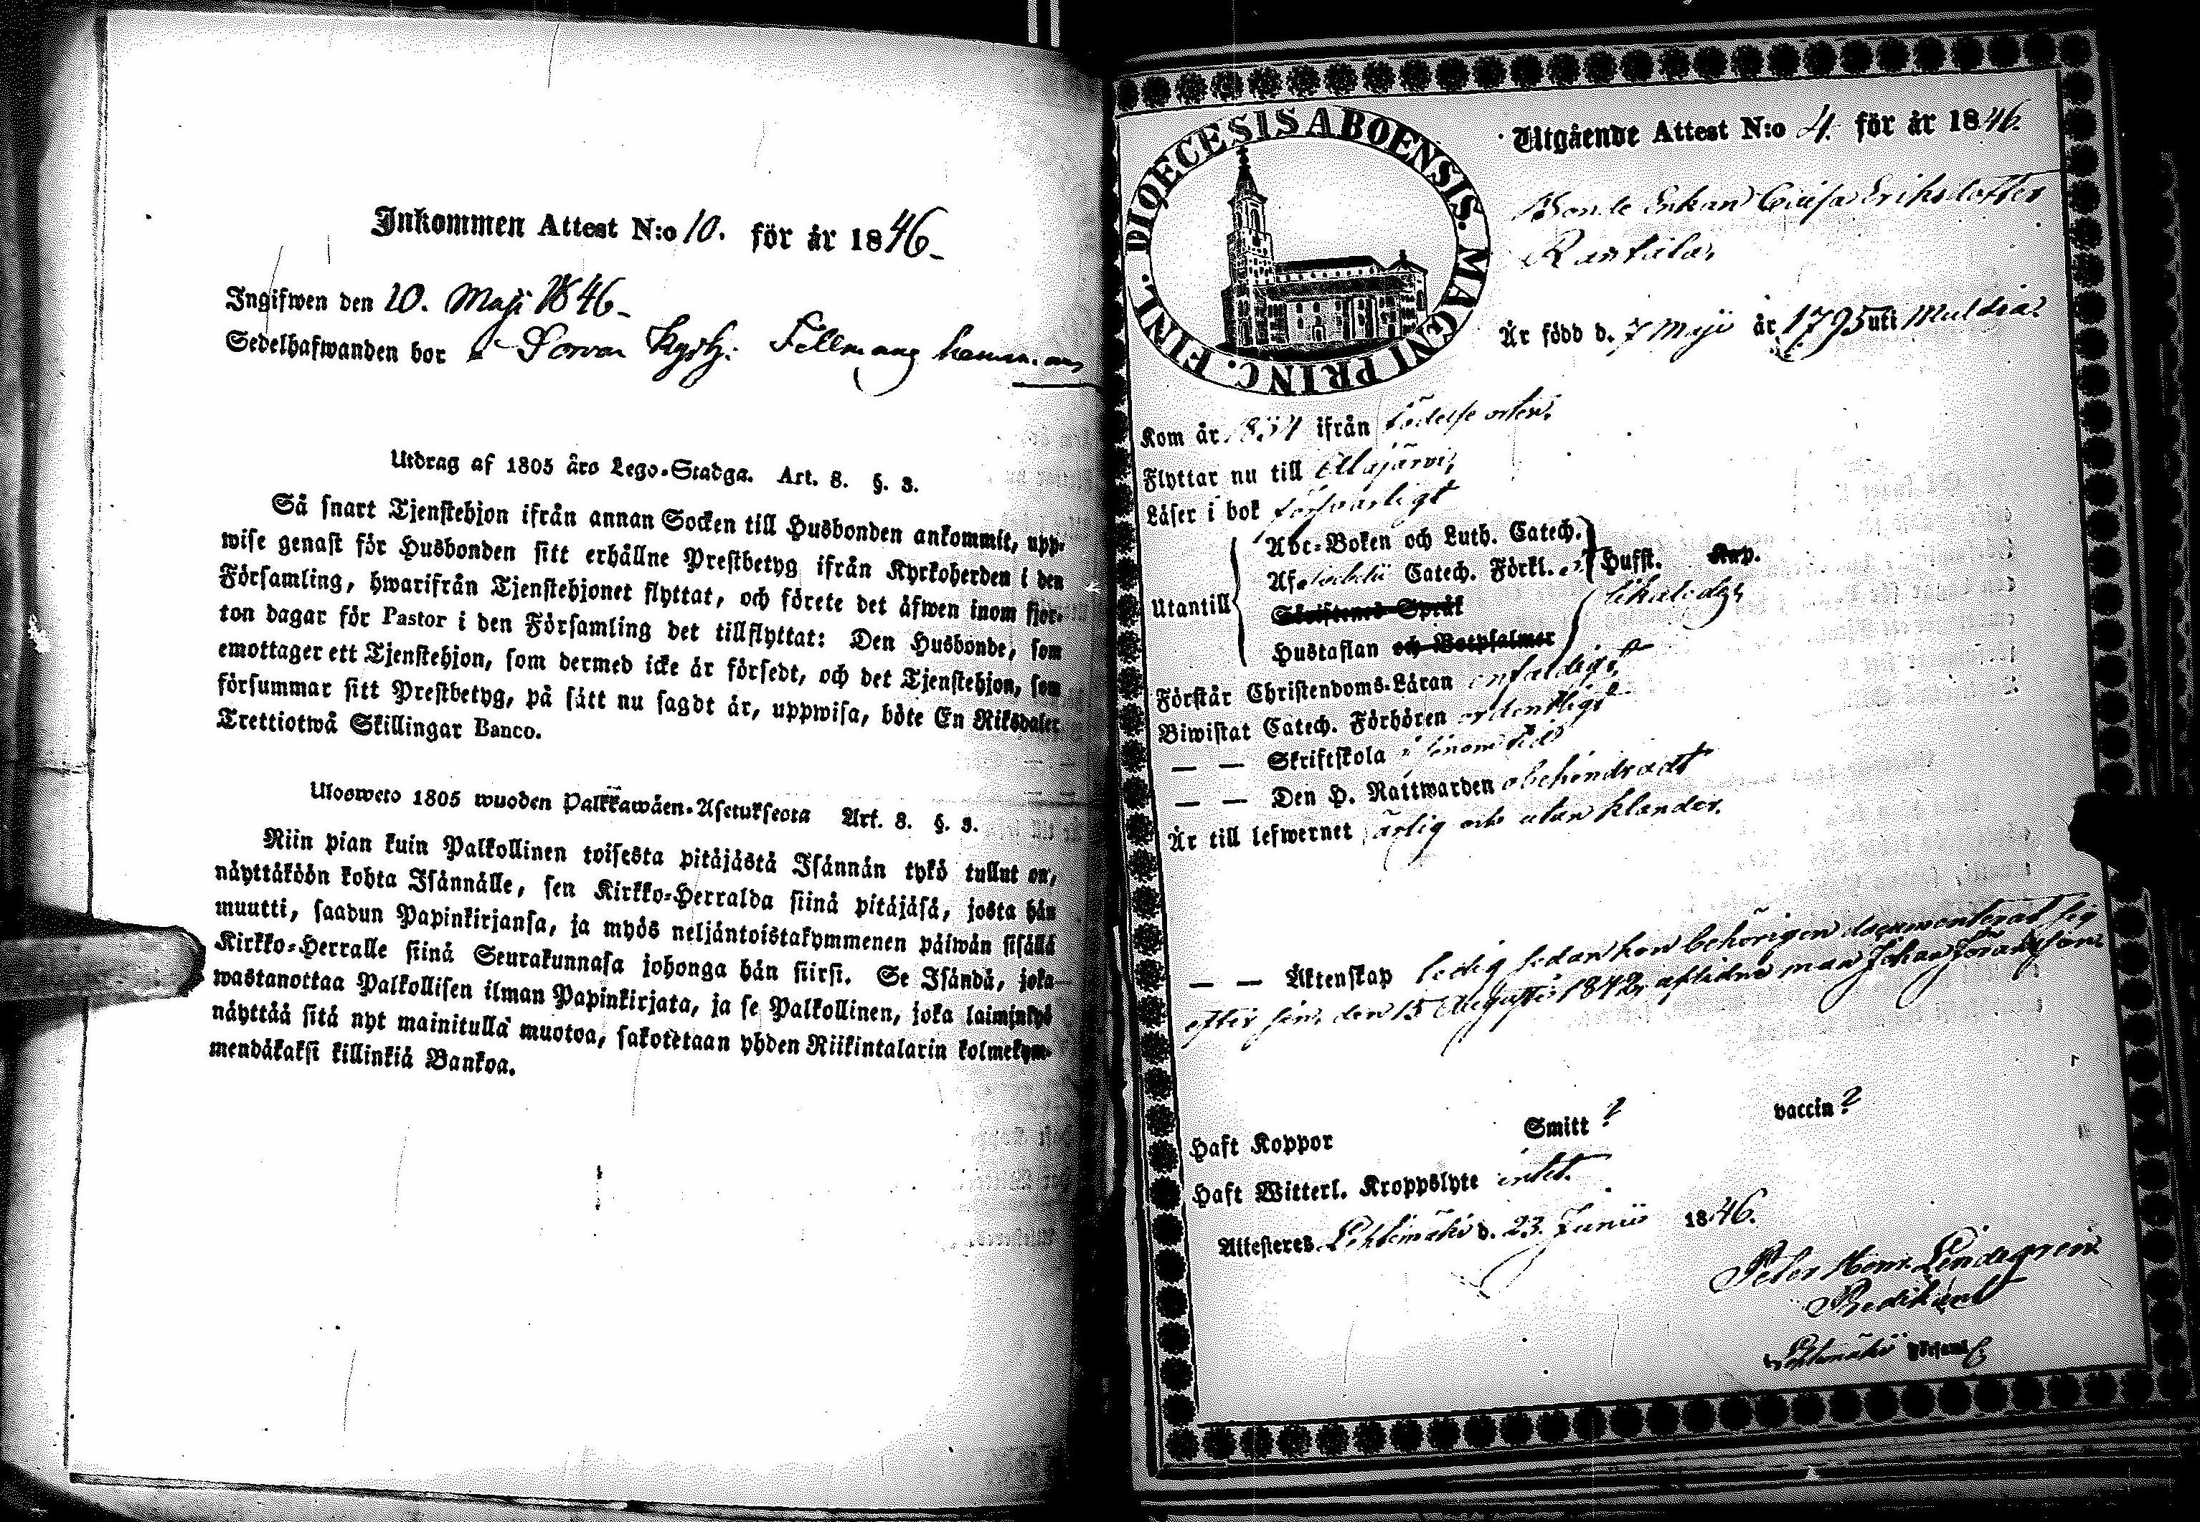 Inkommen Attest N:o 10. för år 1846.
Ingifwen den 10. Maji 1846.
Sedelhafwanden bor
Utdrag af 1805 års Lego-Stadga. Art. 8. §. 3.
Så snart Tjenstehjon ifrån annan Socken till Husbonden ankommit, upp-
wise genast för Husbonden sitt erhållne Prestbetyg ifrån Kyrkoherden i den
Församling, hwarifrån Tjenstehjonet flyttat, och förete det äfwen inom fjor-
ton dagar för Pastor i den Församling det tillflyttat: Den Husbonde, som
emottager ett Tjenstehjon, som dermed icke är försedt, och det Tjenstehjon, som
försummar sitt Prestbetyg, på sätt nu sagdt är, uppwisa, böte En Riksdaler
Trettiotwå Skillingar Banco.
Ulosweto 1805 wuoden Palkkawäen-Asetuksesta Art. 8. §. 3.
Niin pian kuin Palkollinen toisesta pitäjästä Isännän tykö tullut on,
näyttäköön kohta Isännälle, sen Kirkko-Herralda siinä pitäjäsä, josta hän
muutti, saadun Papinkirjansa, ja myös neljäntoistakymmenen päiwän sisällä
Kirkko-Herralle siinä Seurakunnasa johonga hän siirsi. Se Isändä, joka
wastanottaa Palkollisen ilman Papinkirjata, ja se Palkollinen, joka laiminlyö
näyttää sitä nyt mainitulla muotoa, sakotetaan yhden Riikintalarin kolmekym-
mendäkaksi killinkiä Bankoa.
DIOECESIS ABOENSIS. MAGNI PRINC. FINL.
Utgående Attest N:o 4. för år 1846.
Bonde Enkan Caisa Eriksdotter
Rantala,
Är född d. 7 Maji år 1795 uti
Kom år ifrån födelse orten,
Flyttar nu till Alajärvi,
Läser i bok försvarligt
Utantill
Abc-Boken och Luth. Catech.
Af Catech. Förkl. Husst. Kap.
Skriftenes Språk likaledes,
Hustaflan och Botpsalmer
Förstår Christendoms-Läran enfaldigt
Biwistat Catech. Förhören ordentligt
— — Skriftskola i sinom tid
— — Den H. Nattwarden obehindradt
Är till lefwernet ärlig och utan klander,
— — Äktenskap ledig sedan hon behörigen documenterat sig
efter sin, den 15 Augusti 1842, aflidne man Johan
Haft Koppor Smitt? vaccin?
Haft Witterl. Kroppslyte intet.
Attesteres Lehtimäki d. 23. Junii 1846.
Peter Henr. Lindegren
Predikant
Lehtimäki